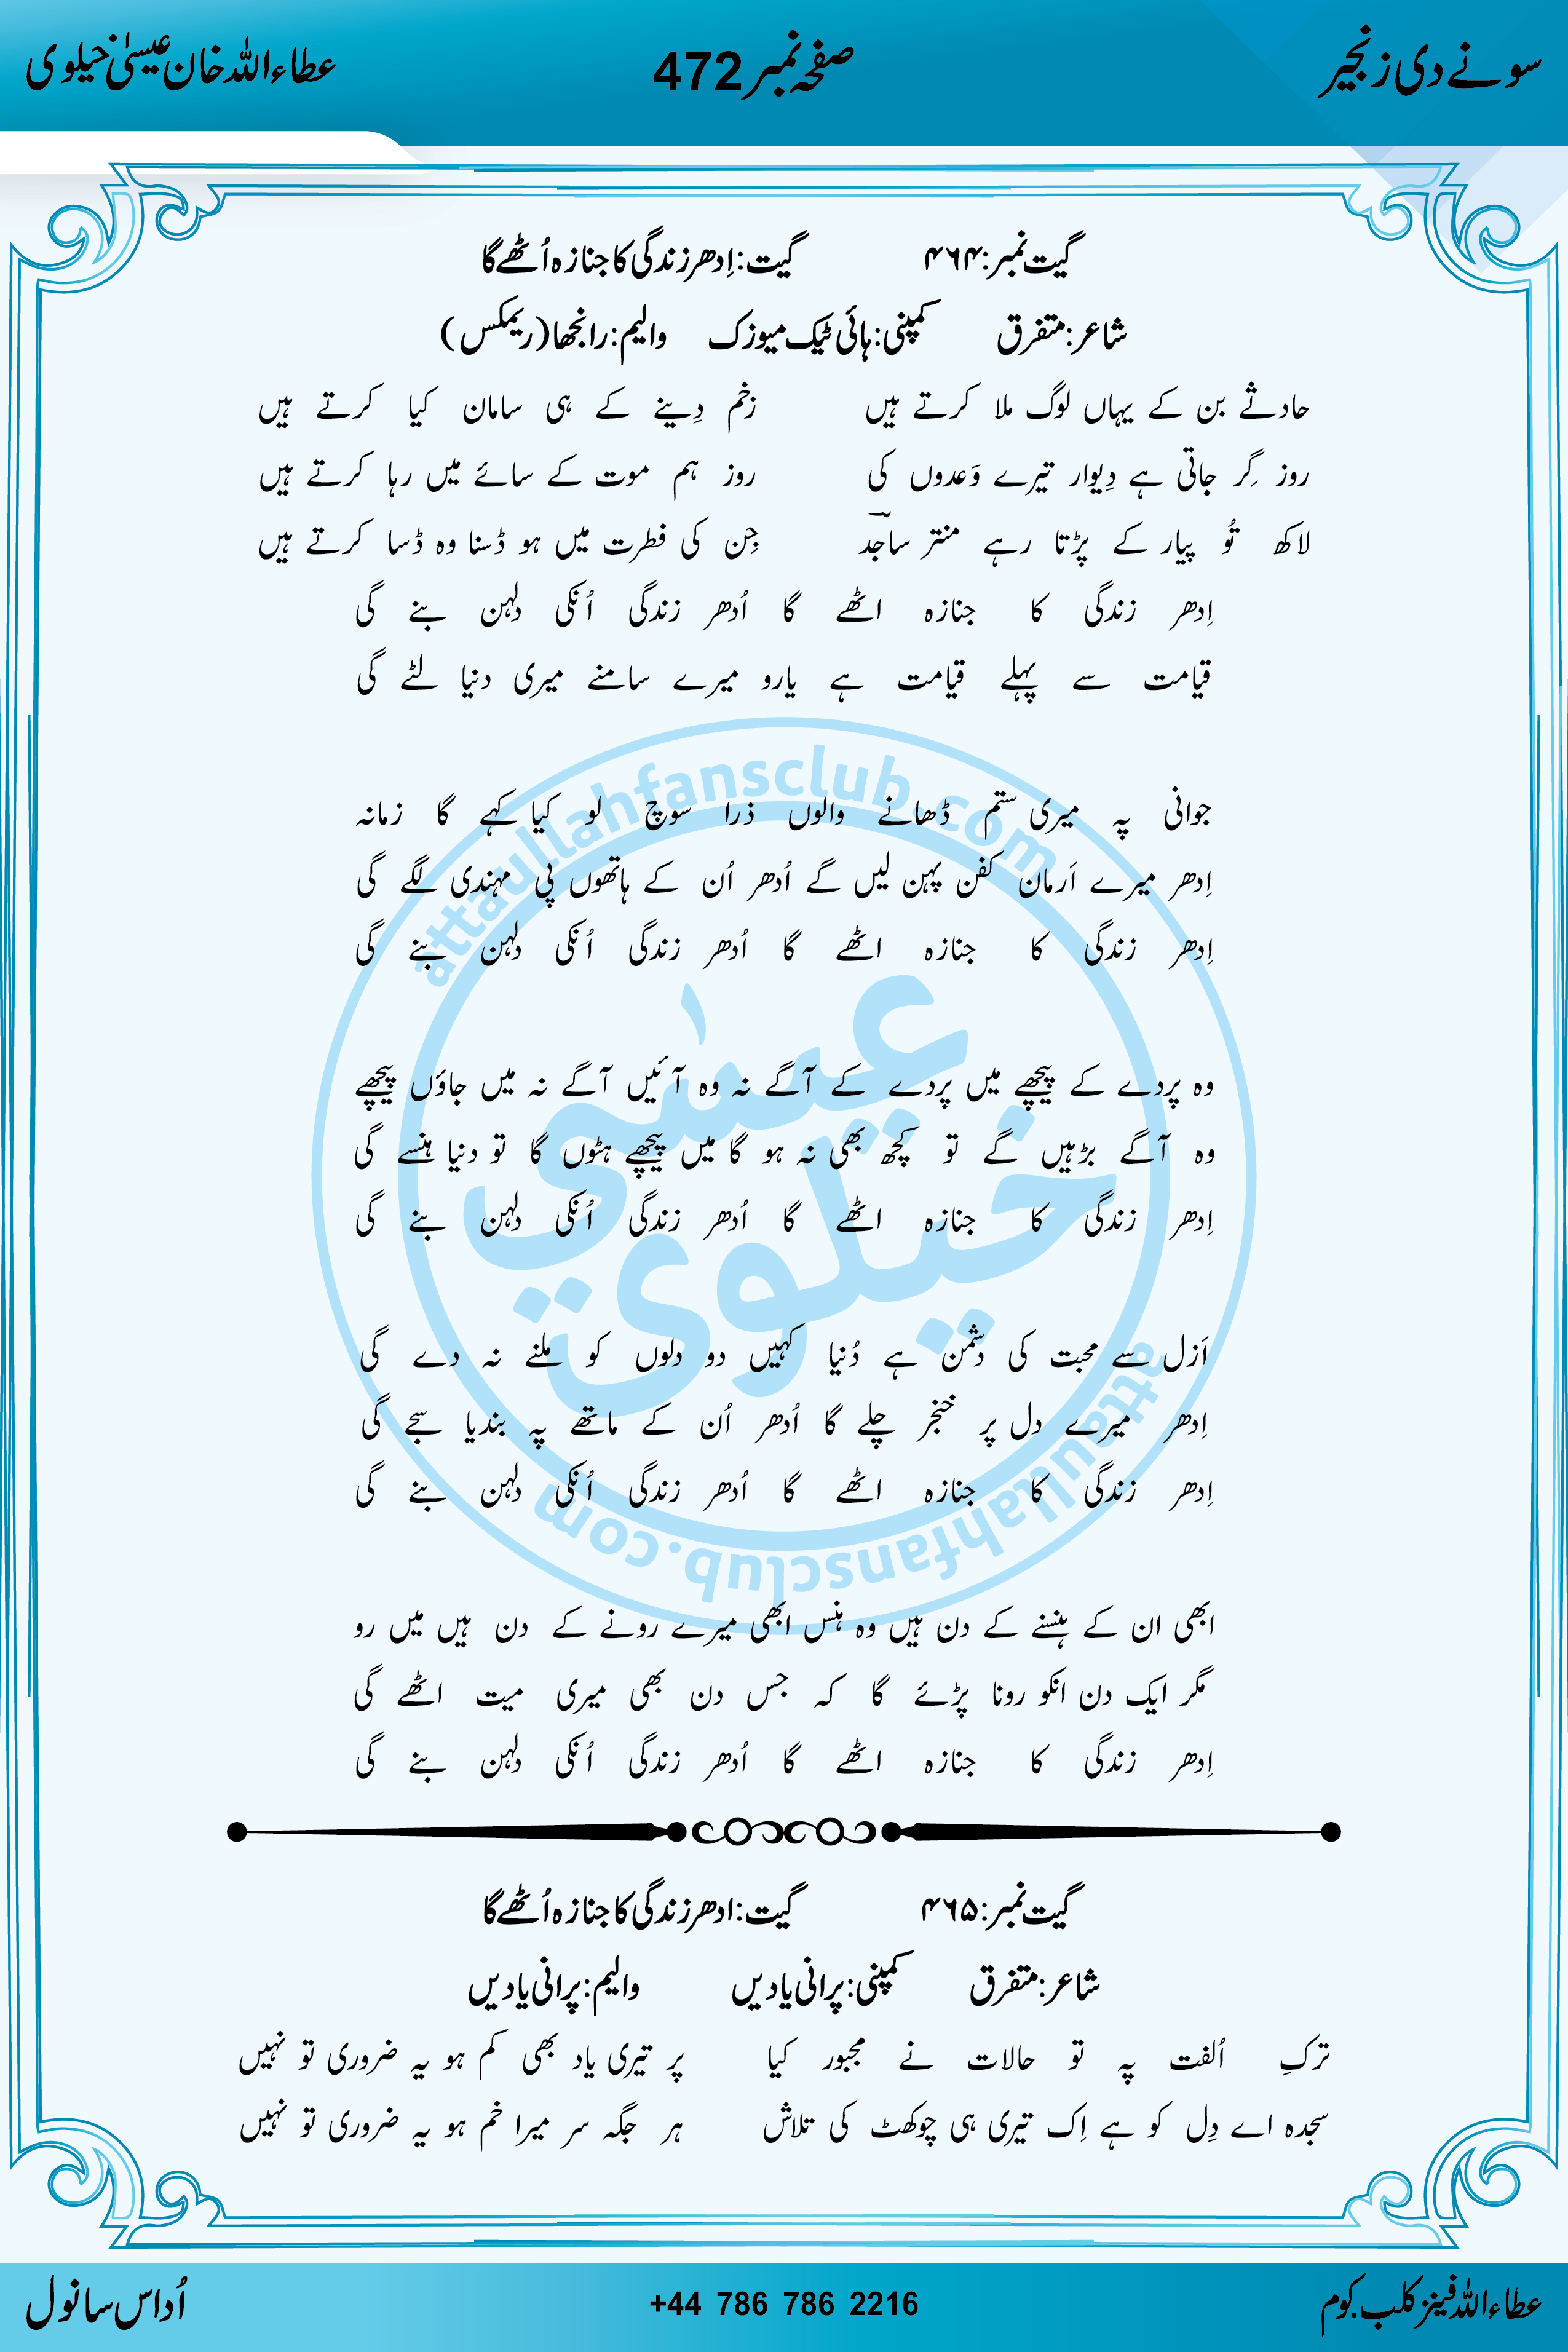 سونے دی زنجیر صفحہ نمبر 472 عطاءاللہ خان عیسیٰ خیلوی
گیت نمبر: ۴۶۴ گیت: اِدھر زندگی کا جنازہ اُٹھے گا
شاعر: متفرق کمپنی: ہائی ٹیک میوزک والیم: رانجھا (ریمکس)
حادثے بن کے یہاں لوگ ملا کرتے ہیں زخم دِینے کے ہی سامان کیا کرتے ہیں
روز گِر جاتی ہے دِیوار تیرے وَعدوں کی روز ہم موت کے سائے میں رہا کرتے ہیں
لاکھ تُو پیار کے پڑتا رہے منتر ساجد جِن کی فطرت میں ہو ڈسنا وہ ڈسا کرتے ہیں
اِدھر زندگی کا جنازہ اٹھے گا اُدھر زندگی اُنکی دلہن بنے گی
قیامت سے پہلے قیامت ہے یارو میرے سامنے میری دنیا لٹے گی
جوانی پہ میری ستم ڈھانے والوں ذرا سوچ لو کیا کہے گا زمانہ
اِدھر میرے اَرمان کفن پہن لیں گے اُدھر اُن کے ہاتھوں پی مہندی لگے گی
اِدھر زندگی کا جنازہ اٹھے گا اُدھر زندگی اُنکی دلہن بنے گی
وہ پردے کے پیچھے میں پردے کے آگے نہ وہ آئیں آگے نہ میں جاؤں پیچھے
وہ آگے بڑہیں گے تو کچھ بھی نہ ہو گا میں پیچھے ہٹوں گا تو دنیا ہنسے گی
اِدھر زندگی کا جنازہ اٹھے گا اُدھر زندگی اُنکی دلہن بنے گی
اَزل سے محبت کی دشمن ہے دُنیا کہیں دو دلوں کو ملنے نہ دے گی
اِدھر میرے دل پر خنجر چلے گا اُدھر اُن کے ماتھے پہ بندیا سجے گی
اِدھر زندگی کا جنازہ اٹھے گا اُدھر زندگی اُنکی دلہن بنے گی
ابھی ان کے ہنسنے کے دن ہیں وہ ہنس ابھی میرے رونے کے دن ہیں میں رو
مگر ایک دن انکو رونا پڑئے گا کہ جس دن بھی میری میت اٹھے گی
اِدھر زندگی کا جنازہ اٹھے گا اُدھر زندگی اُنکی دلہن بنے گی
attaullahfansclub.com
عیسیٰ
خیلوی
attaullahfansclub.com
گیت نمبر: ۴۶۵ گیت: ادھر زندگی کا جنازہ اُٹھے گا
شاعر: متفرق کمپنی: پرانی یادیں والیم: پرانی یادیں
ترکِ اُلفت پہ تو حالات نے مجبور کیا پر تیری یاد بھی کم ہو یہ ضروری تو نہیں
سجدہ اے دِل کو ہے اِک تیری ہی چوکھٹ کی تلاش ہر جگہ سر میرا خم ہو یہ ضروری تو نہیں
عطاءاللہ فینز کلب.کوم +44 786 786 2216 اُداس سانول